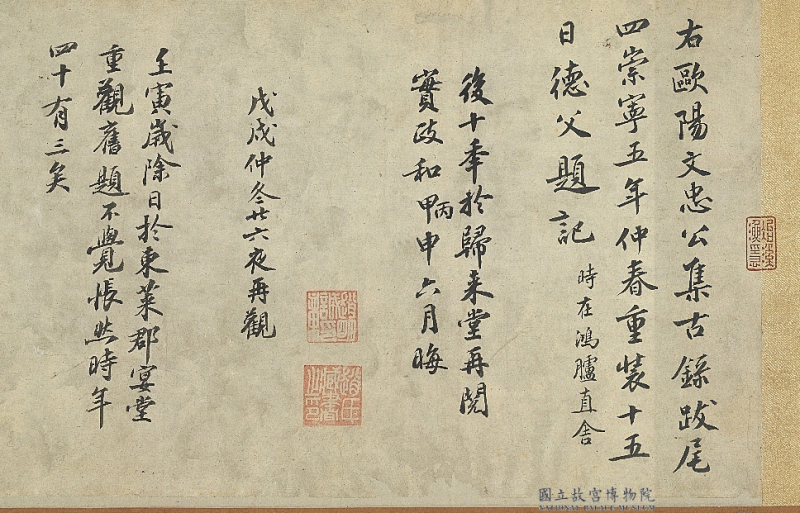 右歐陽文忠公集古錄跋尾
四崇寧五年仲春重裝十五
日德父題記 時在鴻臚直舍
後十年於歸来堂再閱
實政和甲丙申六月晦
戊戌仲冬廿六夜再觀
壬寅歲除日於東萊郡宴堂
重觀舊題不覺悵然時年
四十有三矣
國立故宮博物院
NATIONAL PALACE MUSEUM